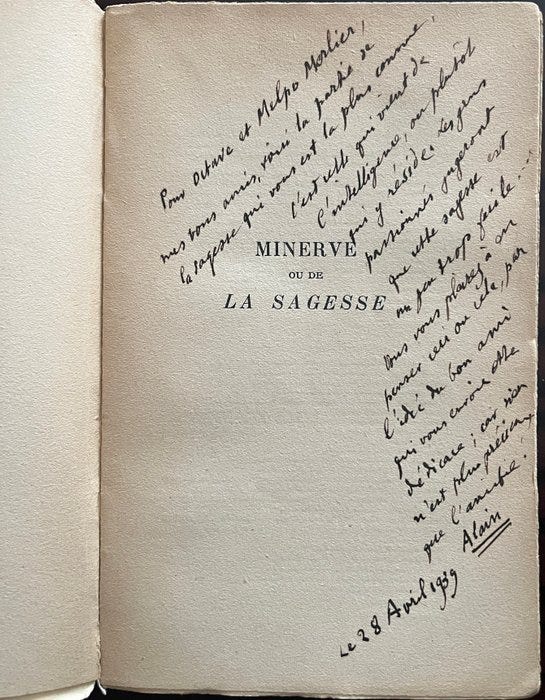 Pour Octave et Melpo Merlier,
mes vrais amis, voici la partie de
la sagesse qui vous est la plus connue,
c'est celle qui vient de
l'intelligence, ou plutôt
qui y réside. Les gens
passionnés jugeront
que cette sagesse est
un peu trop facile...
Vous vous plairez à en
penser ceci ou cela, par
l'idée du bon ami
qui vous envoie cette
dédicace ; car rien
n'est plus précieux
que l'amitié !
Alain
Le 28 Avril 1939
MINERVE
OU DE
LA SAGESSE